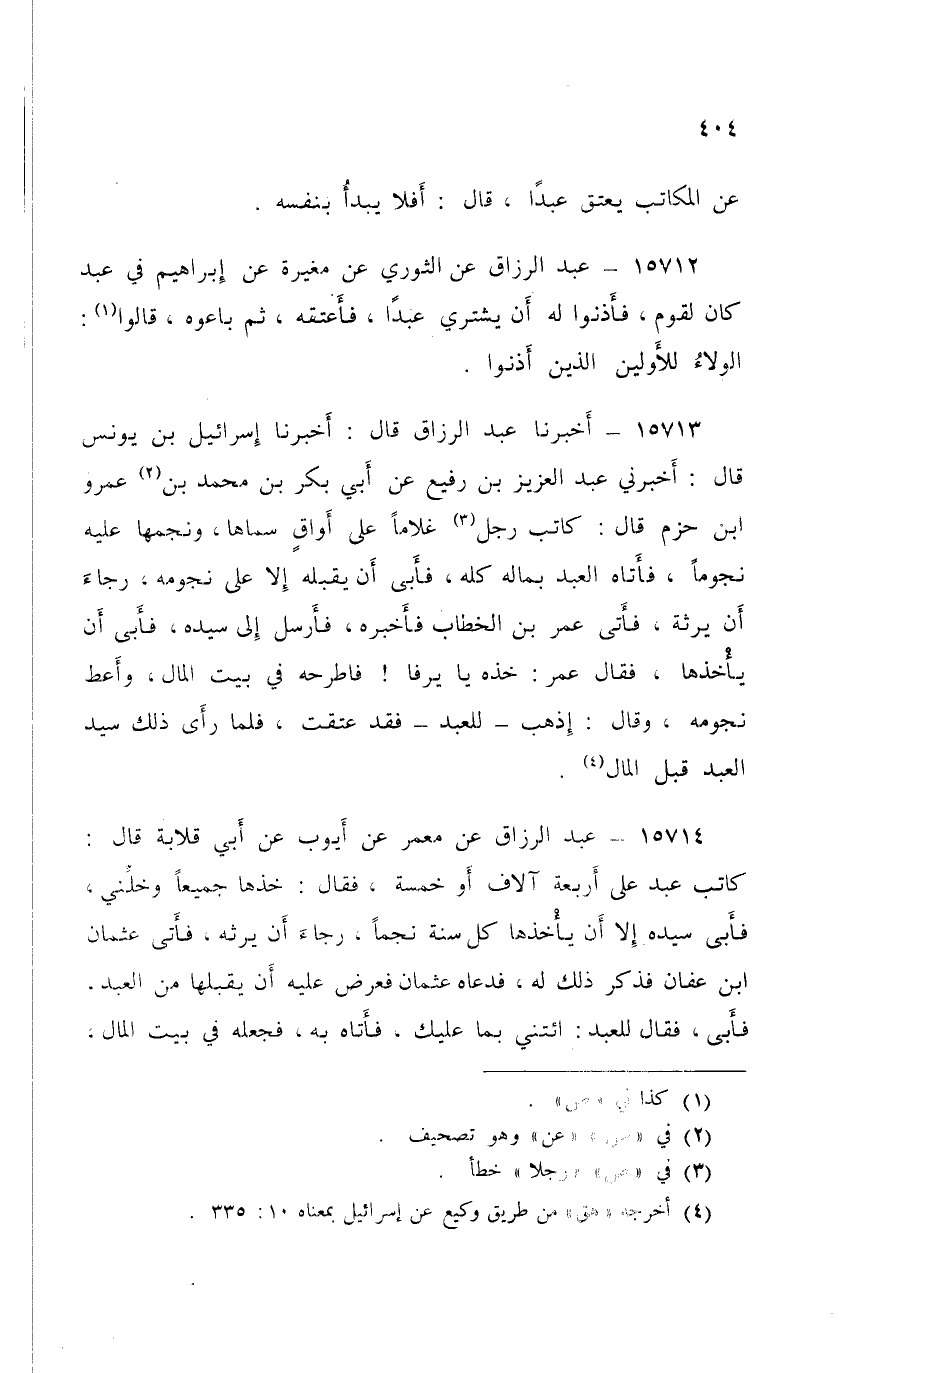 ٤٠٤
عن المكاتب يعتق عبدًا ، قال : أفلا يبدأُ بنفسه .
١٥٧١٢ – عبد الرزاق عن الثوري عن مغيرة عن إبراهيم في عبد
كان لقوم ، فأذنوا له أن يشتري عبدًا ، فأعتقه ، ثم باعوه ، قالوا(١) :
الولاءُ للأولين الذين أذنوا .
١٥٧١٣ – أخبرنا عبد الرزاق قال : أخبرنا إسرائيل بن يونس
قال : أخبرني عبد العزيز بن رفيع عن أبي بكر بن محمد بن(٢) عمرو
ابن حزم قال : كاتب رجل(٣) غلاماً على أواقٍ سماها ، ونجمها عليه
نجوماً ، فأتاه العبد بماله كله ، فأبى أن يقبله إلا على نجومه ، رجاءَ
أن يرثة ، فأتى عمر بن الخطاب فأخبره ، فأرسل إلى سيده ، فأبى أن
يأْخذها ، فقال عمر : خذه يا يرفا ! فاطرحه في بيت المال ، وأعط
نجومه ، وقال : إذهب – للعبد – فقد عتقت ، فلما رأى ذلك سيد
العبد قبل المال(٤) .
١٥٧١٤ – عبد الرزاق عن معمر عن أيوب عن أبي قلابة قال :
كاتب عبد على أربعة آلاف أو خمسة ، فقال : خذها جميعاً وخلّني ،
فأبى سيده إلا أن يأْخذها كل سنة نجماً ، رجاءَ أن يرثه ، فأتى عثمان
ابن عفان فذكر ذلك له ، فدعاه عثمان فعرض عليه أن يقبلها من العبد .
فأبى ، فقال للعبد : ائتني بما عليك ، فأتاه به ، فجعله في بيت المال ،
(١) كذا في «ص» .
(٢) في «ص» «عن» وهو تصحيف .
(٣) في «ص» «رجلا» خطأ .
(٤) أخرجه «هق» من طريق وكيع عن إسرائيل بمعناه ١٠ : ٣٣٥ .